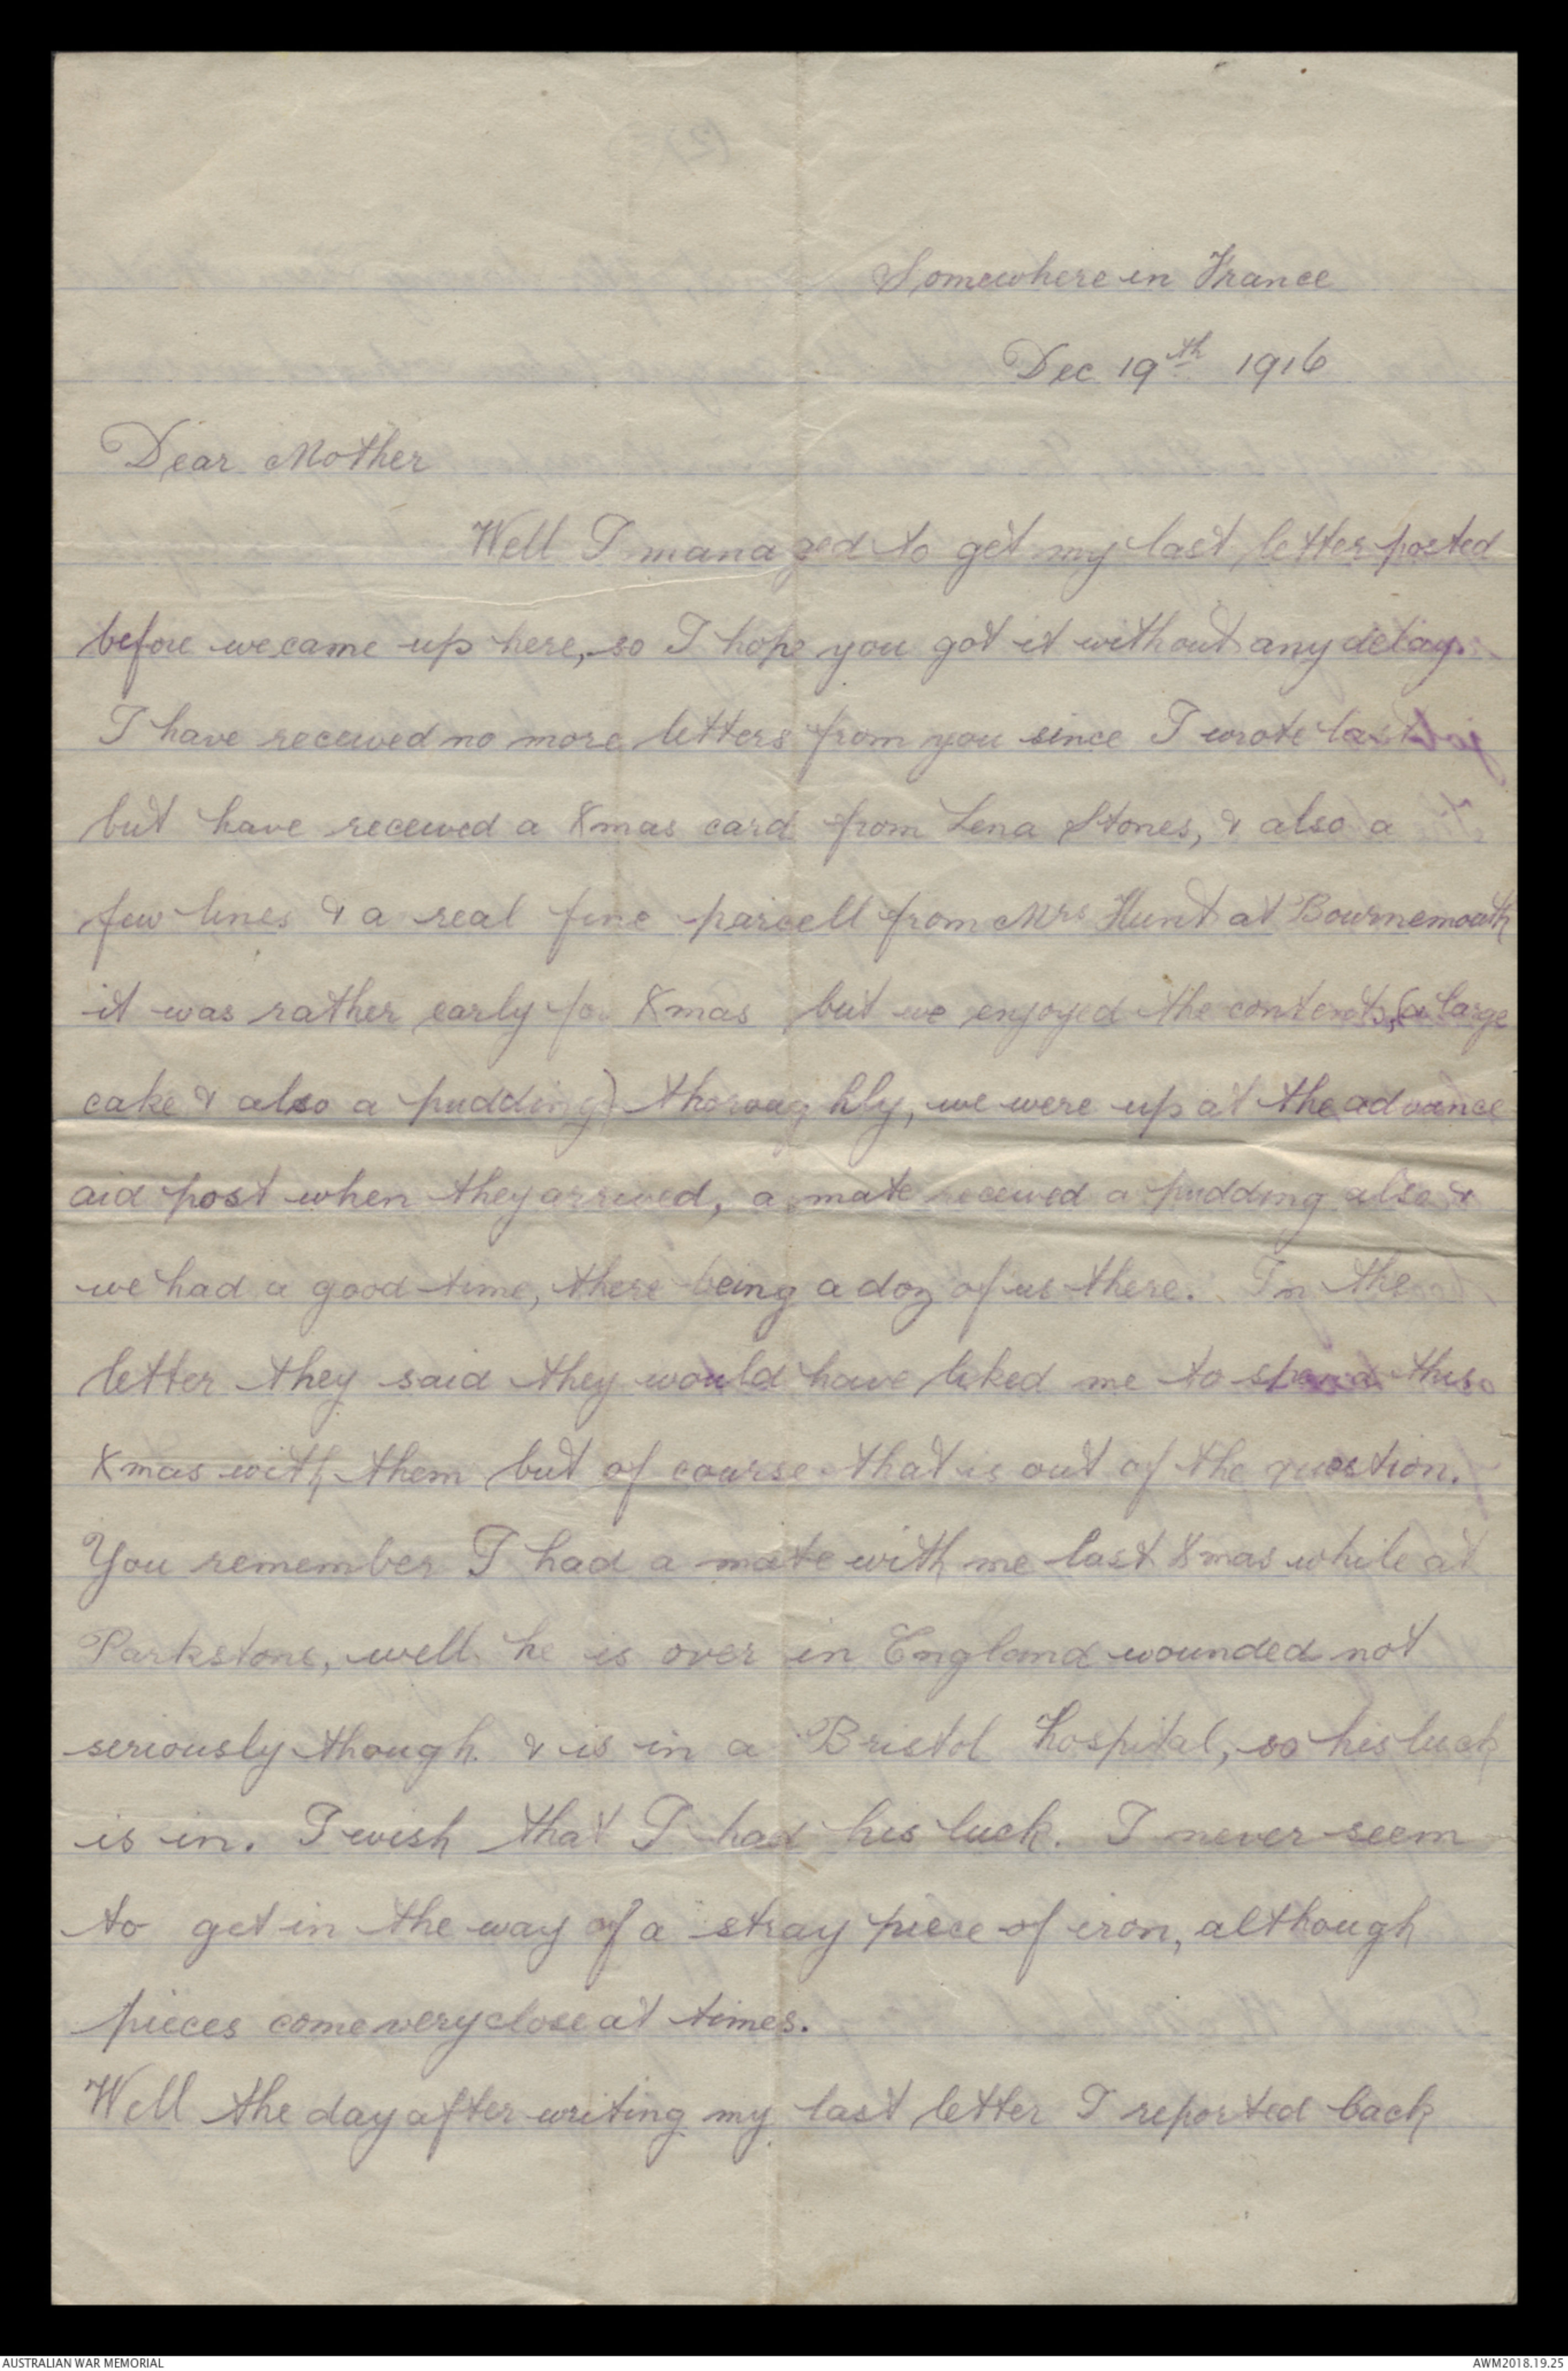 Somewhere in France
Dec 19th 1916
Dear Mother
Well I managed to get my last letter posted
before we came up here, so I hope you got it without any delay.
I have received no more letters from you since I wrote last
but have received a Xmas card from Lena Stones, & also a
few lines & a real fine parcell from Mrs Hunt at Bournemouth
it was rather early for Xmas but we enjoyed the contents, (a large
cake & also a pudding) thoroughly, we were up at the advance
aid post when they arrived, a mate received a pudding also &
we had a good time, there being a doz of us there. In the
letter they said they would have liked me to spend this
Xmas with them but of course that is out of the question.
You remember I had a mate with me last Xmas while at
Parkstone, well he is over in England wounded not
seriously though & is in a Bristol hospital, so his luck
is in. I wish that I had his luck. I never seem
to get in the way of a stray piece of iron, although
pieces come very close at times.
Well the day after writing my last letter I reported back
AUSTRALIAN WAR MEMORIAL
AWM2018.19.25